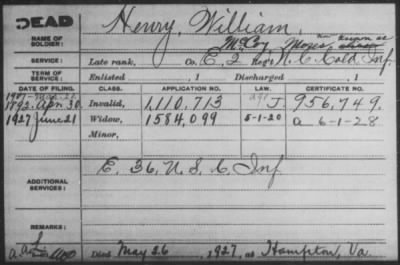 DEAD
NAME OF SOLDIER:
Henry, William,
McCoy, Moses known as
SERVICE:
Late rank, Co. E, 2 Reg't N.C. Cold. Inf.
TERM OF SERVICE:
Enlisted , 1 Discharged , 1
DATE OF FILING. CLASS. APPLICATION NO. LAW. CERTIFICATE NO.
1892. Apr. 30. Invalid, 1,110,713 J. 956,749.
1927 June 21 Widow, 1584,099 5-1-20 a 6-1-28.
Minor,
ADDITIONAL SERVICES:
E. 36, U.S.C. Inf
REMARKS:
Died May 26, 1927, at Hampton, Va.